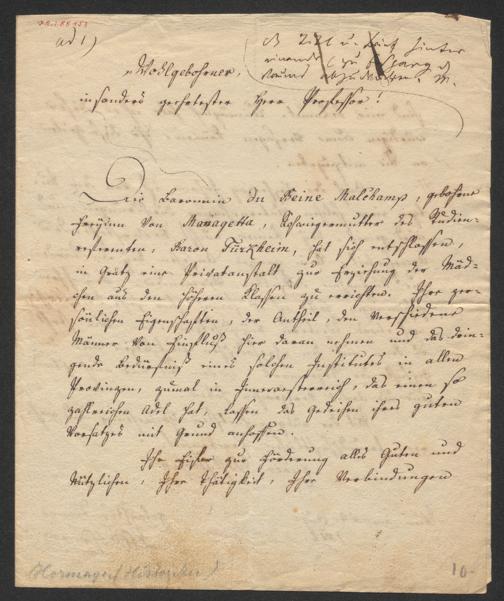 ad 1)
Wohlgebohrner,
insonders geehrtester Herr Professor!
Die Baronnin Du Beine Malchamp, gebohrne
Freyinn von Managetta, Schwiegermutter des Studien-
referenten, Baron Türkheim, hat sich entschlossen,
in Grätz eine Privatanstalt zur Erziehung der Mäd-
chen aus den höhern Klassen zu errichten. Ihre per-
sönlichen Eigenschaften, der Antheil, den verschiedene
Männer von Einfluß hier daran nehmen und das drin-
gende Bedürfniß eines solchen Institutes in allen
Provinzen, zumal in Inneroesterreich, das einen so
zahlreichen Adel hat, lassen das Gedeihen ihres guten
Vorsatzes mit Grund anhoffen.
Ihr Eifer zur Förderung alles Guten und
Nützlichen, Ihre Thätigkeit, Ihre Verbindungen
(Hormayr Historiker)
10.-